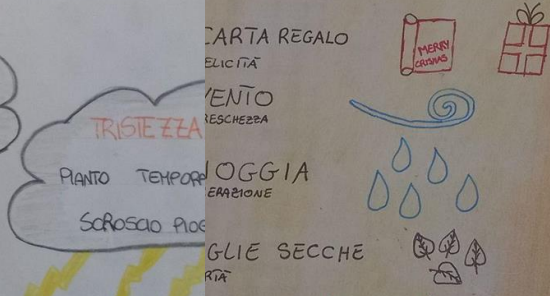 TRISTEZZA
PIANTO TEMPORA
SCROSCIO PIOG
CARTA REGALO
ELICITÀ
MERRY
CRISMAS
VENTO
RESCHEZZA
IOGGIA
ERAZIONE
GLIE SECCHE
RTÀ